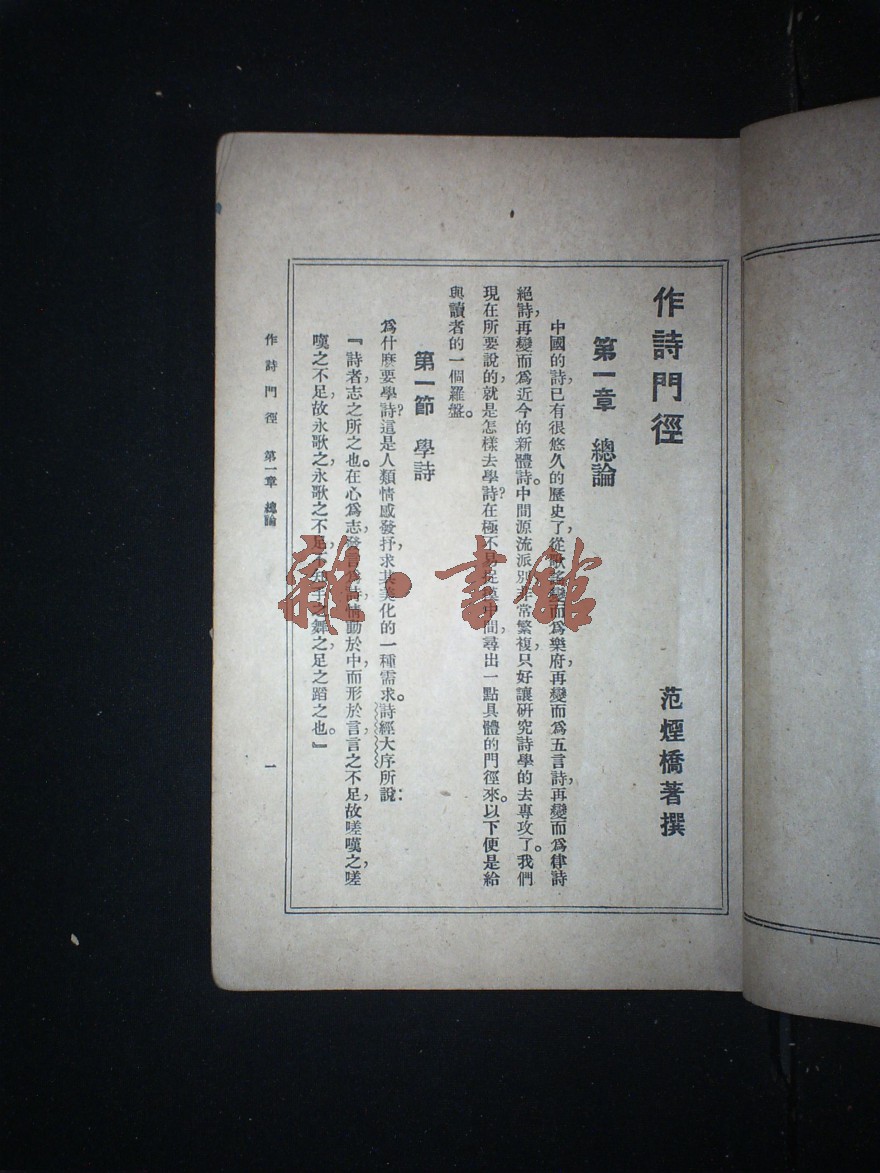 作詩門徑
范煙橋著撰
第一章 總論
中國的詩，已有很悠久的歷史了，從歌謠變而爲樂府，再變而爲五言詩，再變而爲律詩
絕詩，再變而爲近今的新體詩。中間源流派別，非常繁複，只好讓硏究詩學的去專攻了。我們
現在所要說的，就是怎樣去學詩？在極不易捉摸中間，尋出一點具體的門徑來。以下便是給
與讀者的一個羅盤。
第一節 學詩
爲什麽要學詩？這是人類情感發抒，求其美化的一種需求。詩經大序所說：
『詩者，志之所之也。在心爲志，發言爲詩，情動於中，而形於言，言之不足，故嗟嘆之，嗟
嘆之不足，故永歌之，永歌之不足，不知手之舞之，足之蹈之也。』
作詩門徑 第一章 總論
一
雜·書館